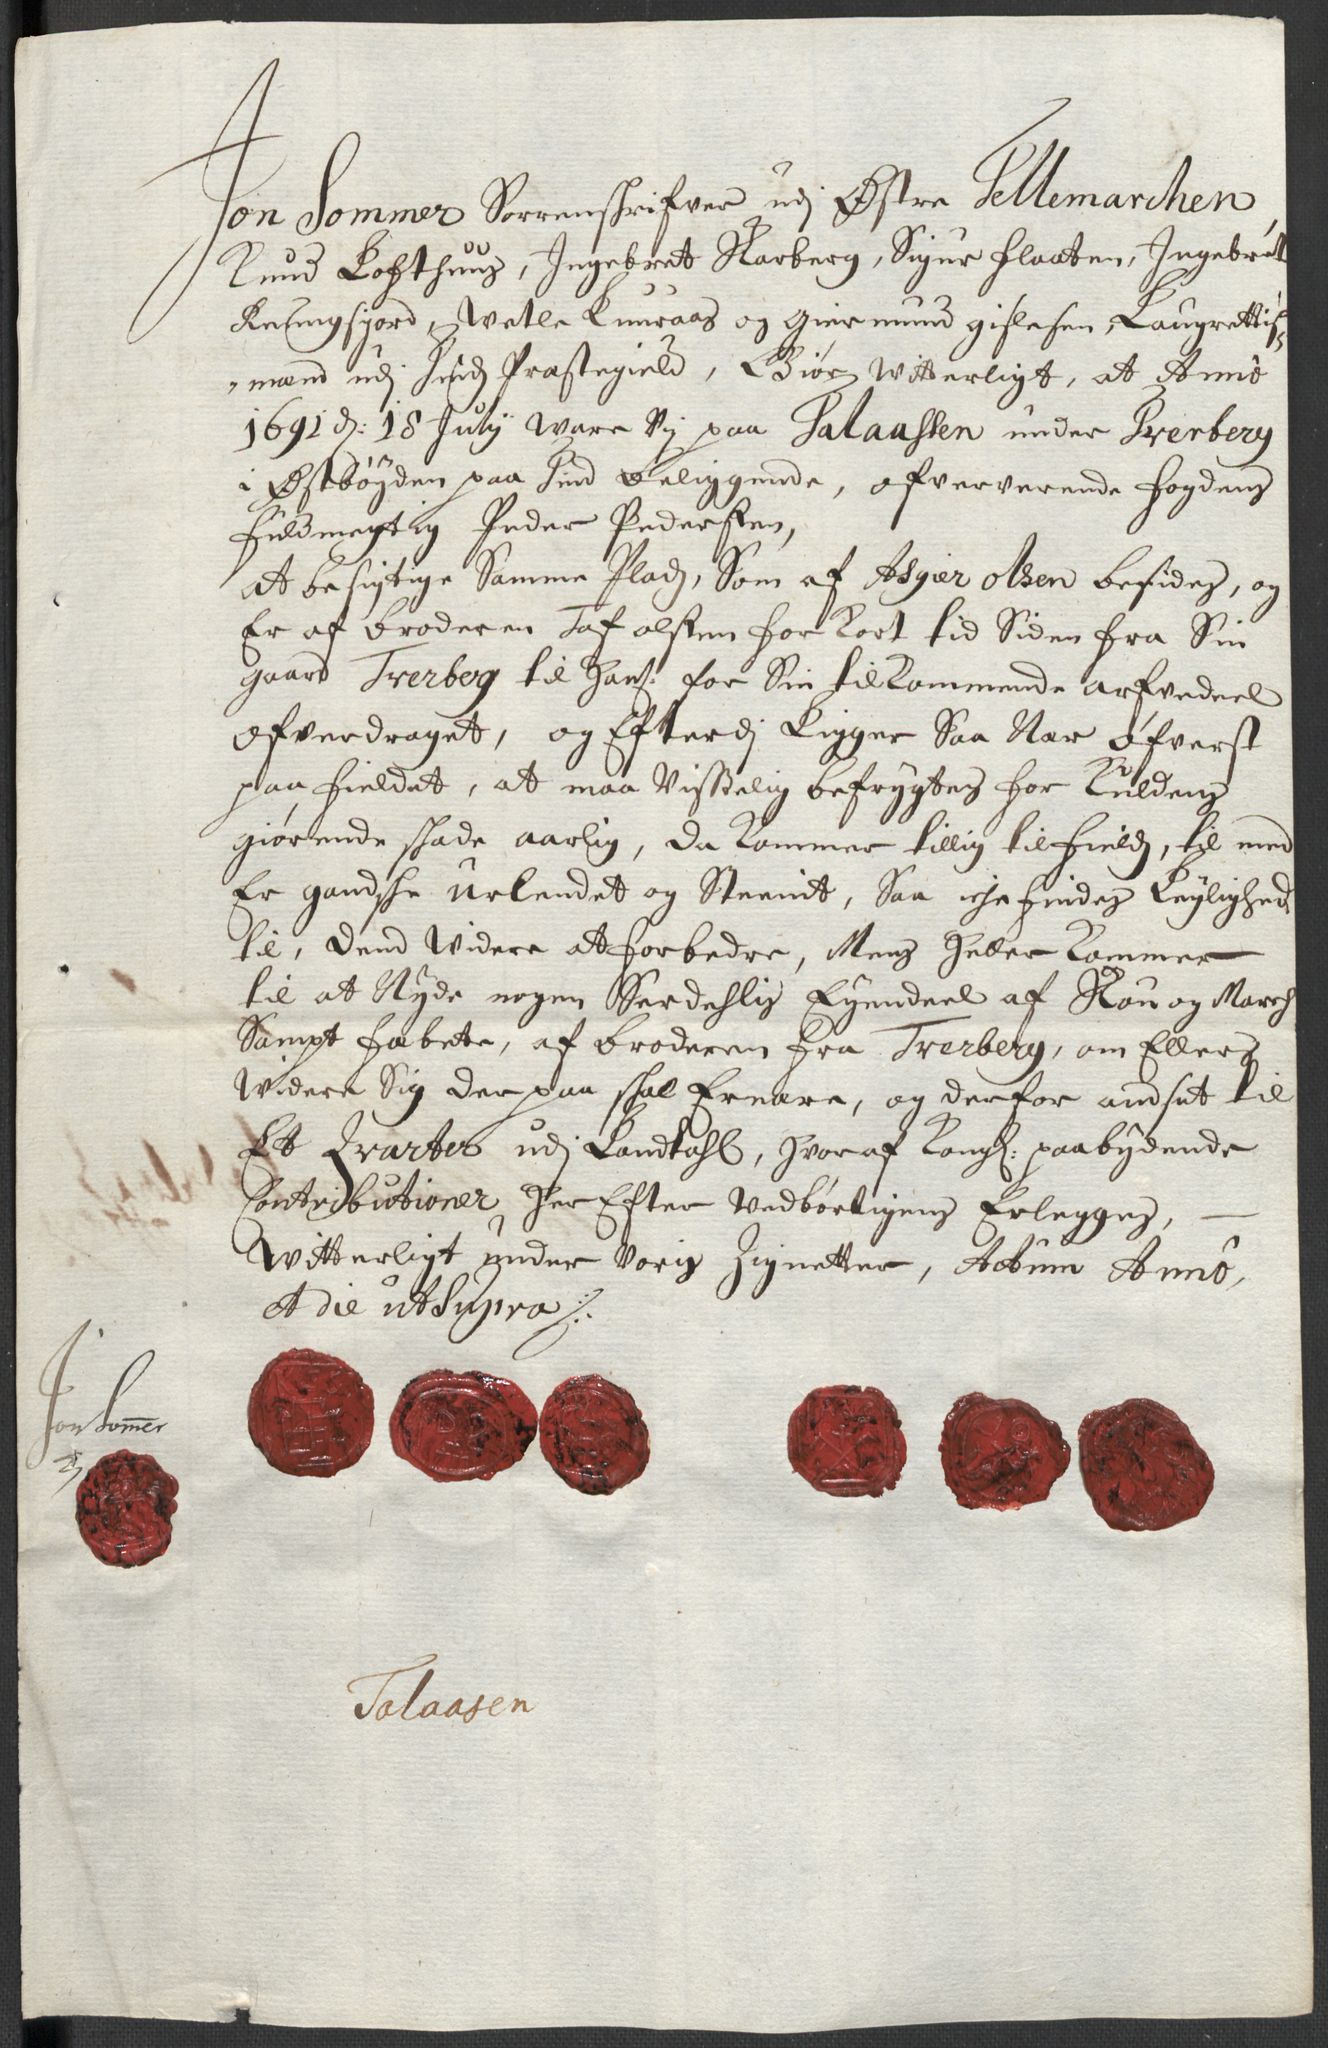 Jon Sommer Sorrenschrifver udj Østre Tellemarchen,
Knud Lofthuus, Ingebret Skarberg, Sigur Flaaten, Ingebret
Wetle Luuraas og Giermund Gislesen, Laugrettis-
mænd udj Tinds Præstegield, Giør Witterligt, at Anno
1691 d: 18 July Ware Vj paa Talaassen under Trerberg
i Østbøyden paa Tind beliggende, ofververende Fogdens
fuldmegtig Peder Pedersen,
at besigtige Samme Plads, Som af Asgier Olsen besides, og
Er af broderen Taf olssen for Kort tid Siden fra Sin
gaard Trerberg til ham for Sin tilkommende arfvedeel
ofverdraget, og Efterdj Ligger Saa Nær øfverst
paa fieldet, at maa Visselig befrygtes for Kuldens
giørende schade aarlig, da Kommer tillig til fields, til med
Er gandsche Urlendet og Steenit, Saa iche findes Leylighed
til, dend Widere at forbedre, Mens heller Kommer
til at Nyde nogen Serdehlis Eyendeel af Skou og March
Sampt fæbete, af broderen fra Trerberg, om Ellers
Widere Sig der paa schal Ernære, og derfor andset til
Et Qvarter udj Landtahl, hvoraf Kongl: paabydende
Contributioner her Efter Vedbørligens Erlegges,
Witterligt under Voris Zignetter, Actum Anno,
et die ut Supra
Jon Sommer
Talaasen